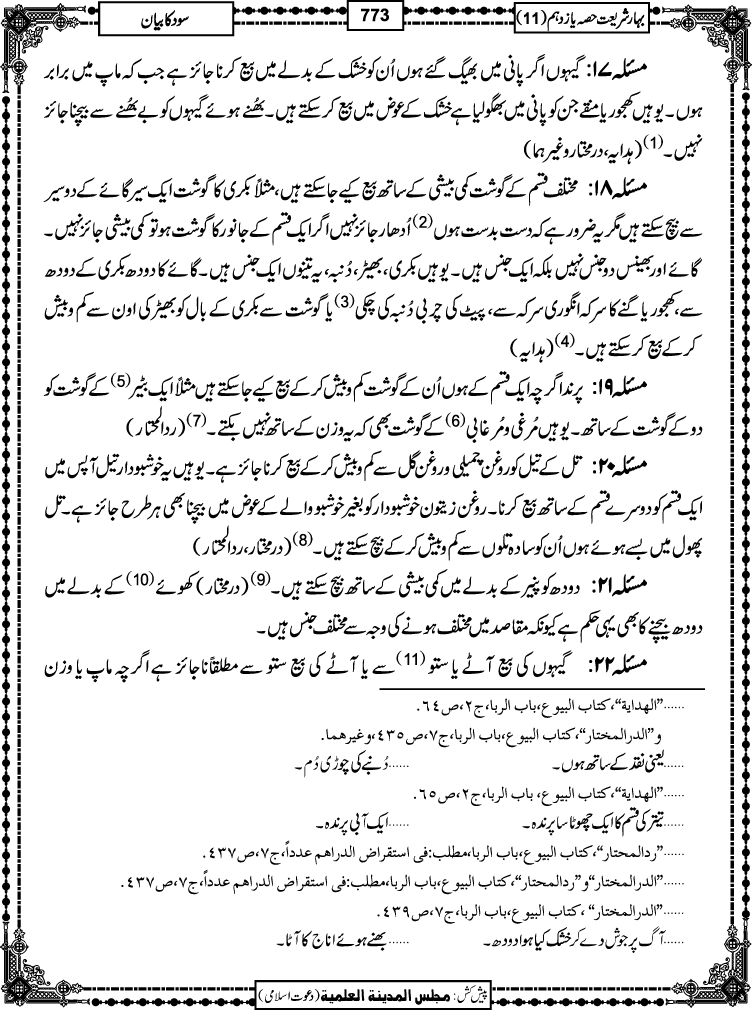 بہارشریعت حصہ یازدہم (11)
773
سود کا بیان
مسئلہ ۱۷: گیہوں اگر پانی میں بھیگ گئے ہوں اُن کو خشک کے بدلے میں بیع کرنا جائز ہے جب کہ ماپ میں برابر
ہوں۔ یوہیں کھجور یا منقے جن کو پانی میں بھگولیا ہے خشک کے عوض میں بیع کرسکتے ہیں۔ بھُنے ہوئے گیہوں کو بے بھُنے سے بیچنا جائز
نہیں۔(1) (ہدایہ، درمختار وغیرہما)
مسئلہ ۱۸: مختلف قسم کے گوشت کمی بیشی کے ساتھ بیع کیے جاسکتے ہیں، مثلاً بکری کا گوشت ایک سیر گائے کے دو سیر
سے بیچ سکتے ہیں مگر یہ ضرور ہے کہ دست بدست ہوں(2) اُدھار جائز نہیں اگر ایک قسم کے جانور کا گوشت ہو تو کمی بیشی جائز نہیں۔
گائے اور بھینس دو جنس نہیں بلکہ ایک جنس ہیں۔ یوہیں بکری، بھیڑ، دُنبہ، یہ تینوں ایک جنس ہیں۔ گائے کا دودھ بکری کے دودھ
سے، کھجور یا گنے کا سرکہ انگوری سرکہ سے، پیٹ کی چربی دُنبہ کی چکی(3) یا گوشت سے بکری کے بال کو بھیڑ کی اون سے کم وبیش
کرکے بیع کرسکتے ہیں۔(4) (ہدایہ)
مسئلہ ۱۹: پرند اگرچہ ایک قسم کے ہوں اُن کے گوشت کم وبیش کرکے بیع کیے جاسکتے ہیں مثلاً ایک بٹیر(5) کے گوشت کو
دو کے گوشت کے ساتھ۔ یوہیں مُرغی و مُرغابی(6) کے گوشت بھی کہ یہ وزن کے ساتھ نہیں بکتے۔(7) (ردالمحتار)
مسئلہ ۲۰: تل کے تیل کو روغن چمیلی وروغن گل سے کم وبیش کرکے بیع کرنا جائز ہے۔ یوہیں یہ خوشبودار تیل آپس میں
ایک قسم کو دوسرے قسم کے ساتھ بیع کرنا۔ روغن زیتون خوشبودار کو بغیر خوشبو والے کے عوض میں بیچنا بھی ہر طرح جائز ہے۔ تل
پھول میں بسے ہوئے ہوں اُن کو سادہ تلوں سے کم وبیش کرکے بیچ سکتے ہیں۔(8) (درمختار، ردالمحتار)
مسئلہ ۲۱: دودھ کو پنیر کے بدلے میں کمی بیشی کے ساتھ بیچ سکتے ہیں۔(9) (درمختار) کھوئے(10) کے بدلے میں
دودھ بیچنے کا بھی یہی حکم ہے کیونکہ مقاصد میں مختلف ہونے کی وجہ سے مختلف جنس ہیں۔
مسئلہ ۲۲: گیہوں کی بیع آٹے یا ستو(11) سے یا آٹے کی بیع ستو سے مطلقاً ناجائز ہے اگرچہ ماپ یا وزن
......”الهداية“، كتاب البيوع، باب الربا، ج۲، ص۶۴.
و ”الدرالمختار“، كتاب البيوع، باب الربا، ج۷، ص۴۳۵، وغيرهما.
......یعنی نقد کے ساتھ ہوں۔ ......دُنبے کی چوڑی دُم۔
......”الهداية“، كتاب البيوع، باب الربا، ج۲، ص۶۵.
......تیتر کی قسم کا ایک چھوٹا سا پرندہ۔ ......ایک آبی پرندہ۔
......”ردالمحتار“، كتاب البيوع، باب الربا، مطلب: فى استقراض الدراهم عدداً، ج۷، ص۴۳۷.
......”الدرالمختار“ و ”ردالمحتار“، كتاب البيوع، باب الربا، مطلب: فى استقراض الدراهم عدداً، ج۷، ص۴۳۷.
......”الدرالمختار“، كتاب البيوع، باب الربا، ج۷، ص۴۳۹.
......آگ پر جوش دے کر خشک کیا ہوا دودھ۔ ......بھنے ہوئے اناج کا آٹا۔
پیش کش: مجلس المدینة العلمیة (دعوتِ اسلامی)